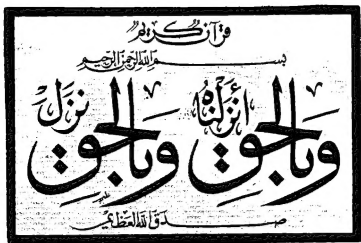 قرآن كريم
بسم الله الرحمن الرحيم
وبالحق أنزلناه وبالحق نزل
صدق الله العظيم